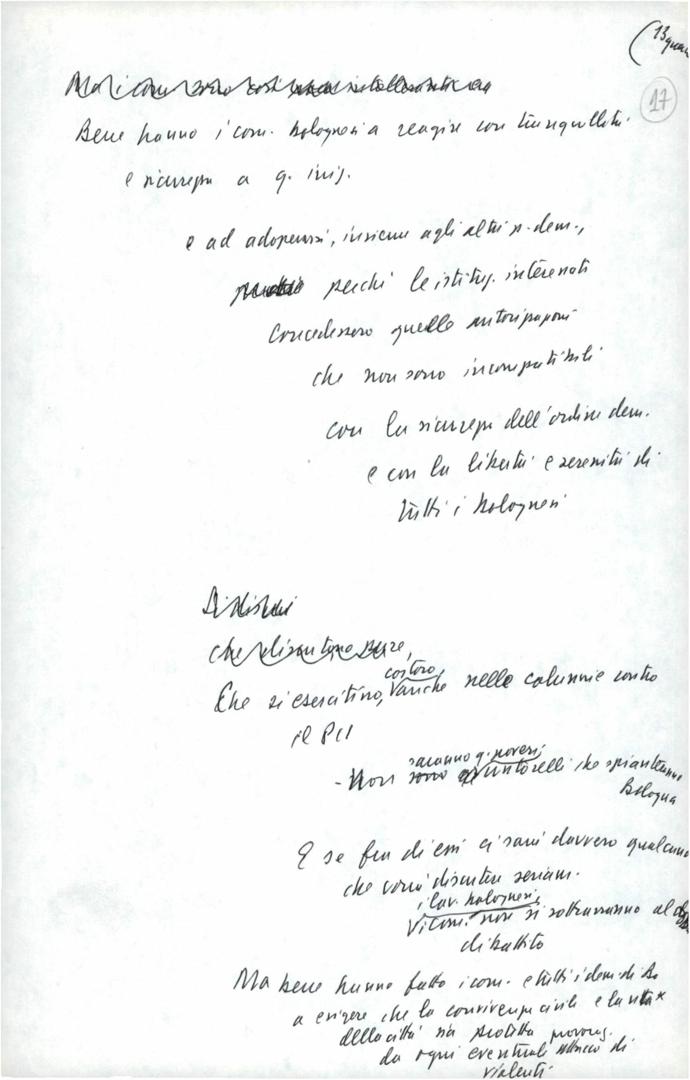 17
Ma i com. sono così
Bene hanno i com. bolognesi a reagire con tranquillità
e sicurezza a q. iniz.
e ad adoperarsi, insieme agli altri p. dem.,
perché le istituz. interessati
concedessero quelle autorizzazioni
che non sono incompatibili
con la sicurezza dell'ordine dem.
e con la libertà e serenità di
tutti i bolognesi
che discutono pure,
costoro,
Che si esercitino, anche nelle calunnie contro
il PCI
saranno q. poveri
- Non sono untorelli che spianteranno
Bologna
E se fra di essi ci sarà davvero qualcuno
che vorrà discutere seriam.
i lav. bolognesi,
i com. non si sottrarranno al
dibattito
Ma bene hanno fatto i com. e tutti i dem. di Bo
a esigere che la convivenza civile e la vita
della città sia protetta
da ogni eventuale attacco di
violenti